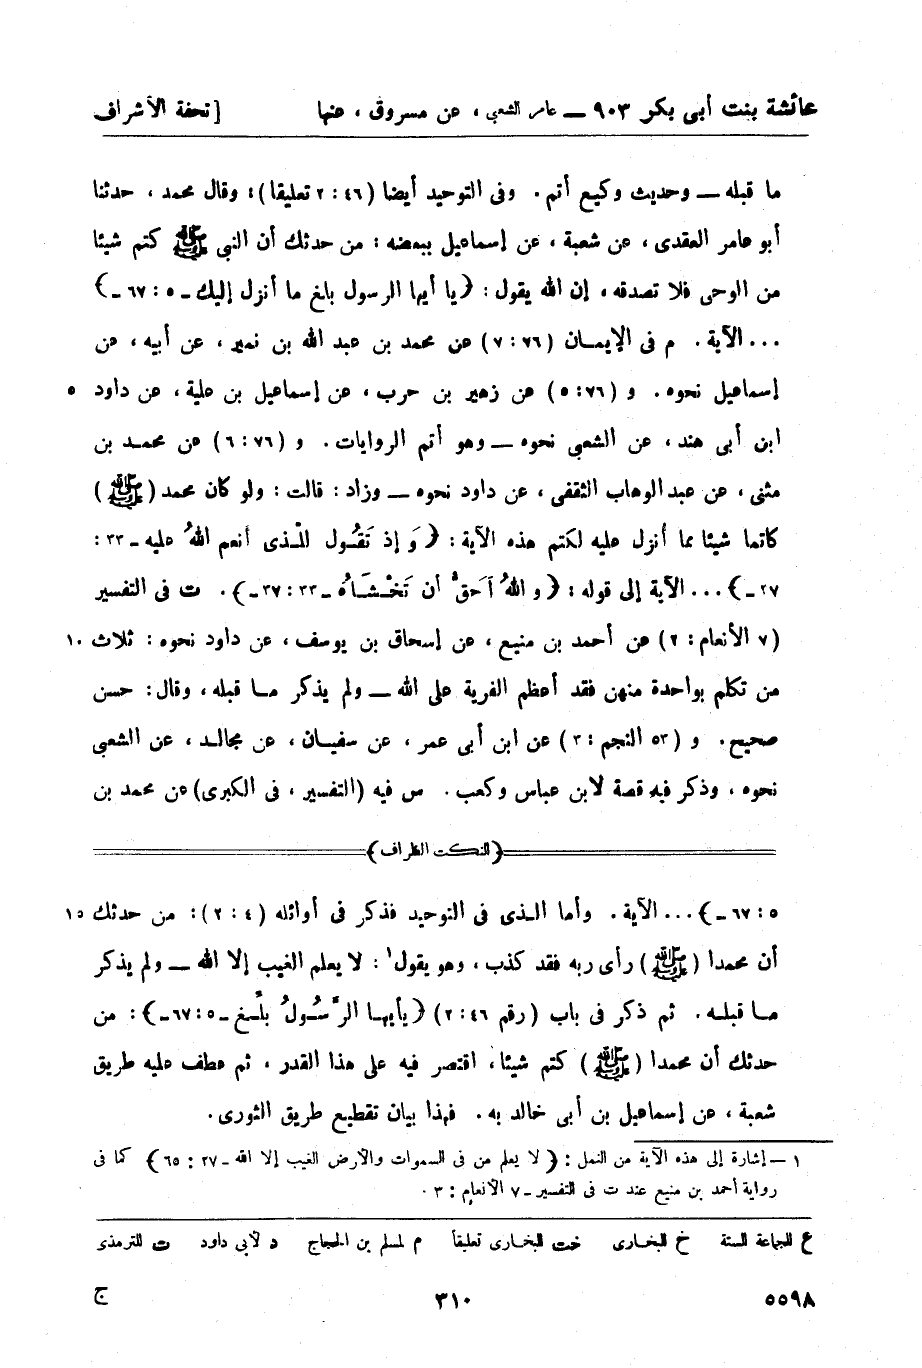 عائشة بنت أبى بكر ٩٠٣ ــ عامر الشعبي ، عن مسروق ، عنها [ تحفة الأشراف
ما قبله ــ وحديث وكيع أتم . وفى التوحيد أيضا (٤٦ : ٢ تعليقا) : وقال محمد ، حدثنا
أبو عامر العقدى ، عن شعبة ، عن إسماعيل ببعضه : من حدثك أن النبى ﷺ كتم شيئا
من الوحى فلا تصدقه ، إن الله يقول : ﴿يا أيها الرسول بلغ ما أنزل إليك ـ ٥ : ٦٧ ـ﴾
... الآية . م فى الإيمان (٧٦ : ٧) عن محمد بن عبد الله بن نمير ، عن أبيه ، عن
إسماعيل نحوه . و (٧٦ : ٥) عن زهير بن حرب ، عن إسماعيل بن علية ، عن داود ٥
ابن أبى هند ، عن الشعبى نحوه ــ وهو أتم الروايات . و (٧٦ : ٦) عن محمد بن
مثنى ، عن عبد الوهاب الثقفى ، عن داود نحوه ــ وزاد : قالت : ولو كان محمد (ﷺ)
كاتما شيئا مما أنزل عليه لكتم هذه الآية : ﴿وَ إذ تَقُول للذى أنعم اللهُ عليه ـ ٣٣ :
٣٧ ـ﴾ ... الآية إلى قوله : ﴿و اللهُ أحَقُّ أن تَخْشَاهُ ـ ٣٣ : ٣٧ ـ﴾ . ت فى التفسير
(٧ الأنعام : ٢) عن أحمد بن منيع ، عن إسحاق بن يوسف ، عن داود نحوه : ثلاث ١٠
من تكلم بواحدة منهن فقد أعظم الفرية على الله ــ ولم يذكر ما قبله ، وقال : حسن
صحيح . و (٥٣ النجم : ٣) عن ابن أبى عمر ، عن سفيان ، عن مجالد ، عن الشعبى
نحوه ، وذكر فيه قصة لابن عباس وكعب . س فيه (التفسير ، فى الكبرى) عن محمد بن
﴿النكت الظراف﴾
٥ : ٦٧ ـ﴾ ... الآية . وأما الذى فى التوحيد فذكر فى أوائله (٤ : ٢) : من حدثك ١٥
أن محمدا (ﷺ) رأى ربه فقد كذب ، وهو يقول ١ : لا يعلم الغيب إلا الله ــ ولم يذكر
ما قبله . ثم ذكر فى باب (رقم ٤٦ : ٢) ﴿يأيها الرَّسُولُ بلِّغ ـ ٥ : ٦٧ ـ﴾ : من
حدثك أن محمدا (ﷺ) كتم شيئا ، اقتصر فيه على هذا القدر ، ثم عطف عليه طريق
شعبة ، عن إسماعيل بن أبى خالد به . فهذا بيان تقطيع طريق الثورى .
١ ــ إشارة إلى هذه الآية من النمل : ﴿لا يعلم من فى السموات والأرض الغيب إلا الله ـ ٢٧ : ٦٥﴾ كما فى
رواية أحمد بن منيع عند ت فى التفسير ـ ٧ الأنعام : ٣ .
ع للجماعة الستة خ للبخارى خت للبخارى تعليقاً م لمسلم بن الحجاج د لأبى داود ت للترمذى
٥٥٩٨ ٣١٠ ج